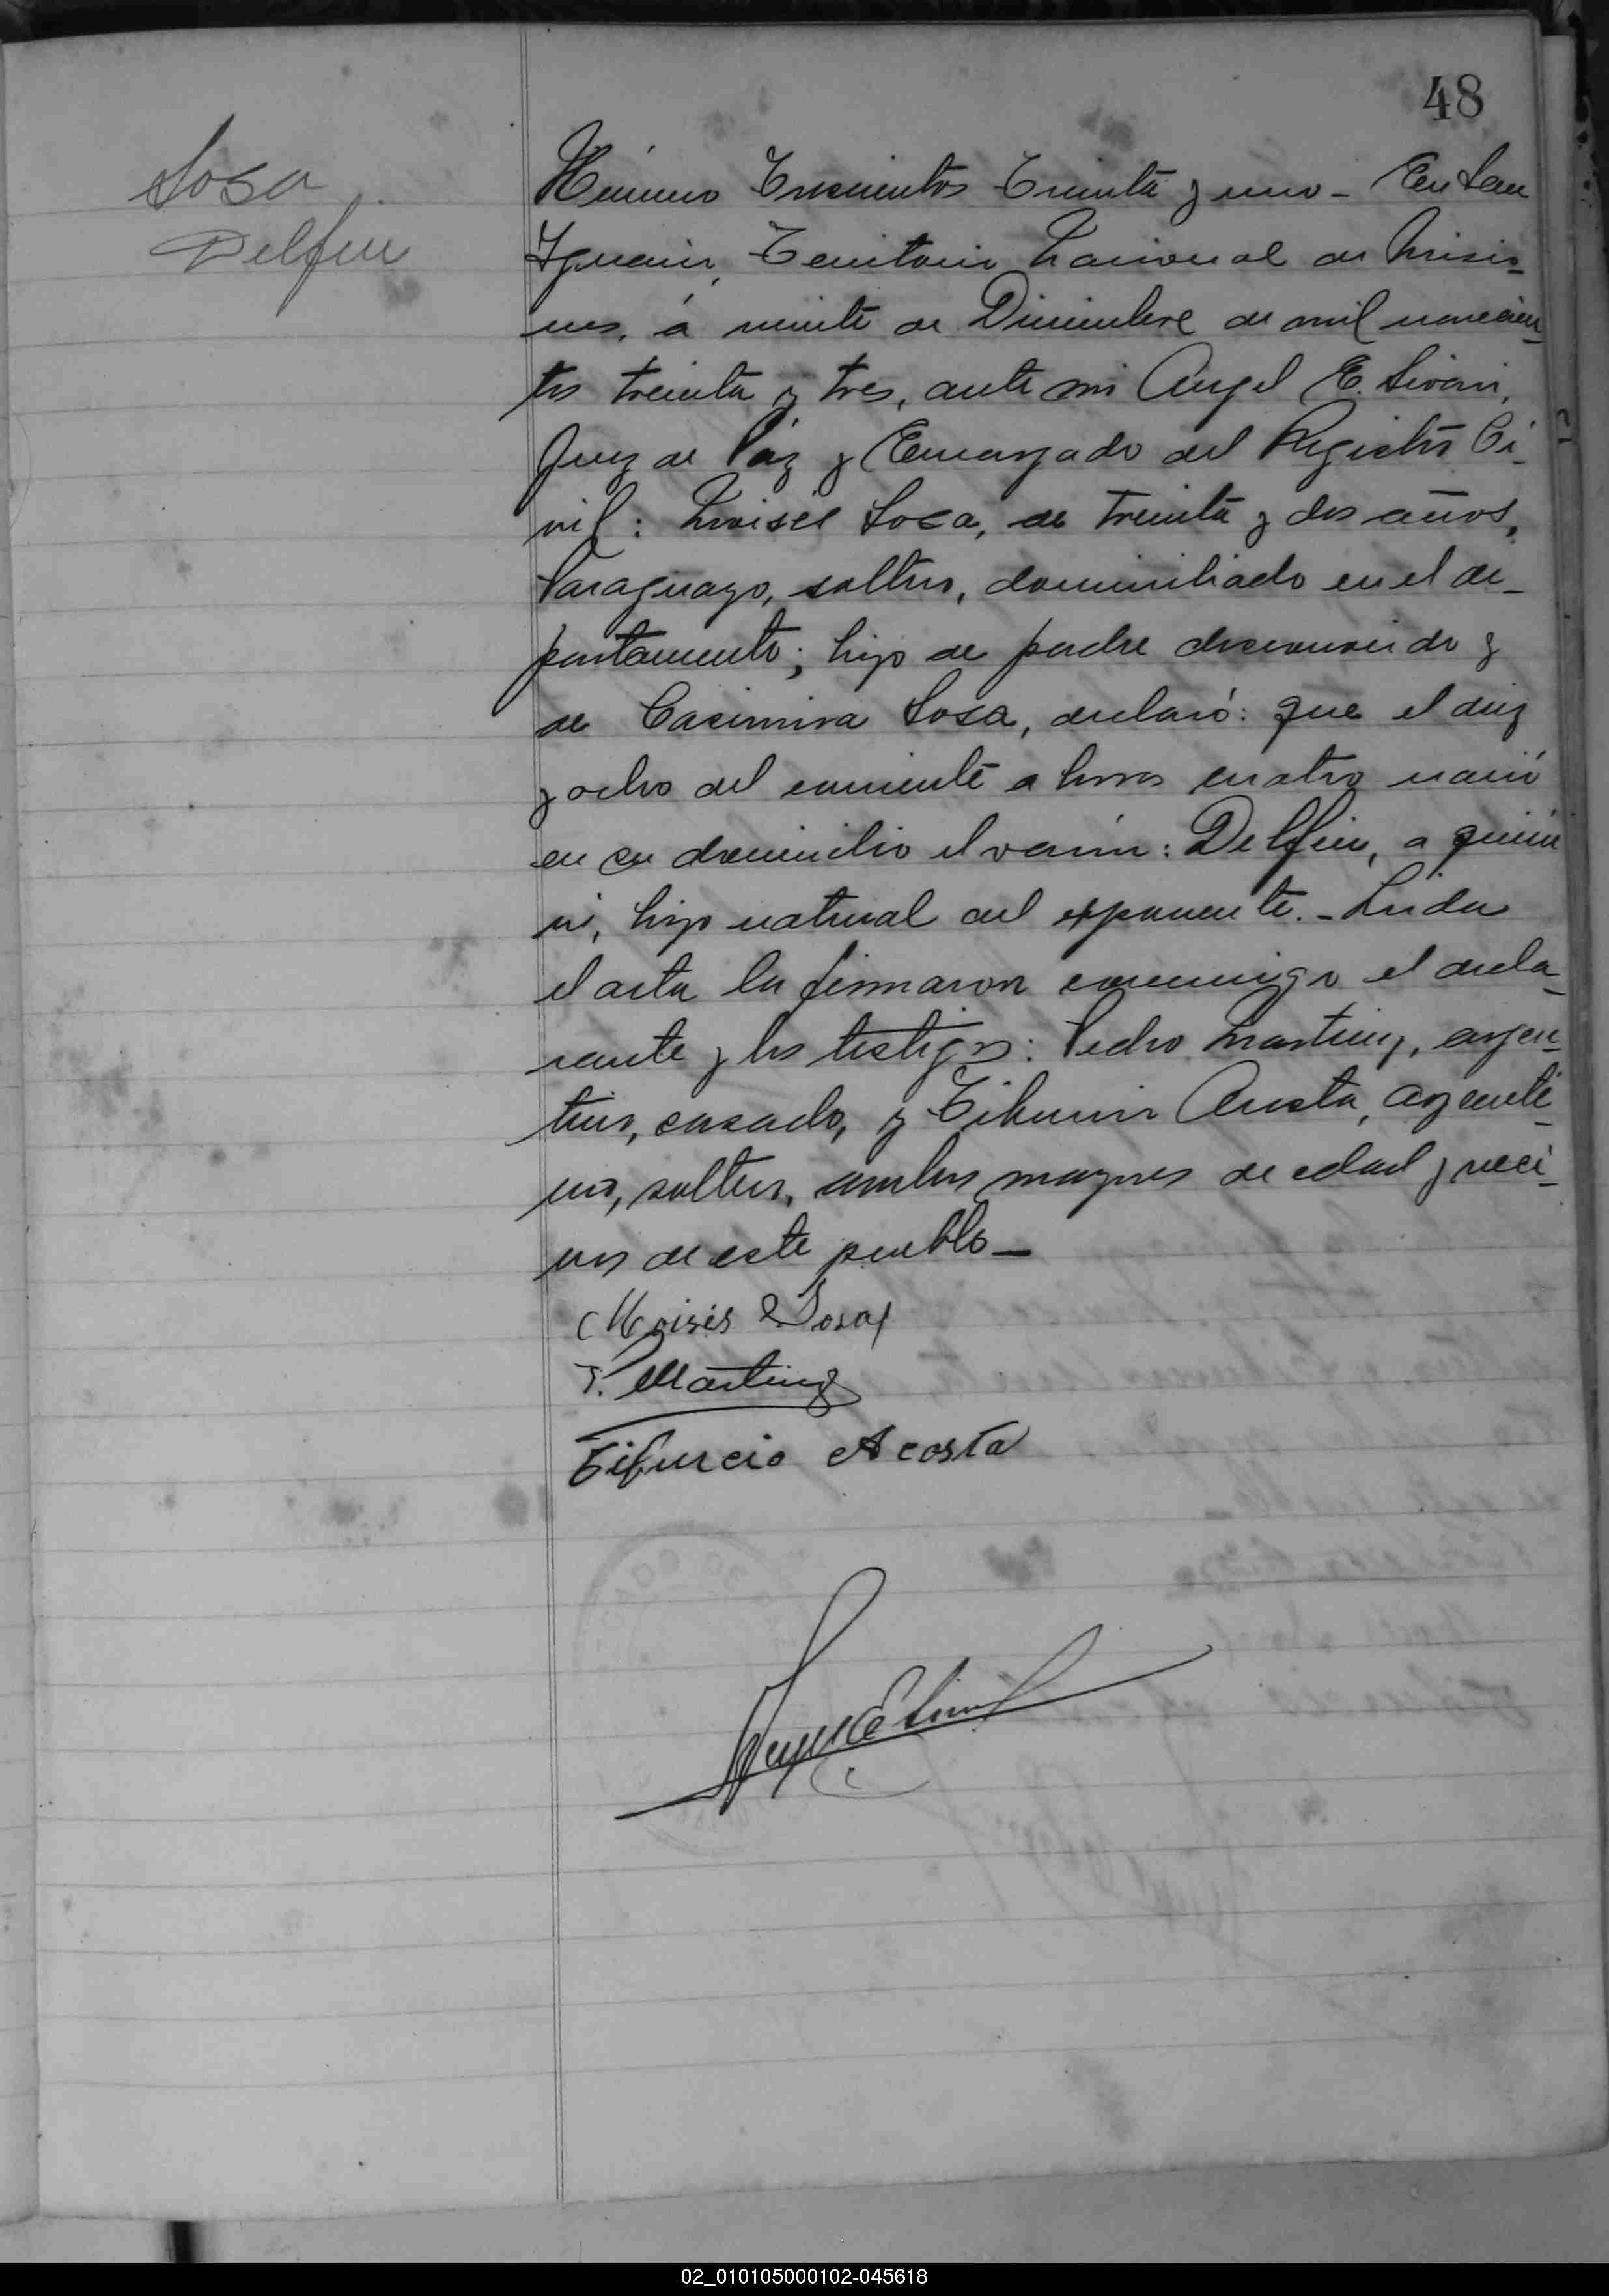 48
Sosa
Delfin
Número Trescientos Treinta y uno - En San
Ignacio, Territorio Nacional de Misio-
nes, á veinte de Diciembre de mil novecien-
tos treinta y tres, ante mi Angel E.
Juez de Páz y Encargado del Registro Ci-
vil: Moisés Sosa, de treinta y dos años,
Paraguayo, soltero, domiciliado en el de-
partamento; hijo de padre desconocido y
de Casimira Sosa, declaró: que el diez
y ocho del corriente a horas cuatro nació
en su domicilio el varón: Delfin, a quien
vi, hijo natural del exponente. - Leida
el acta la firmaron conmigo el decla-
rante y los testigos: Pedro Martinez, argen-
tino, casado, y Tiburcio Acosta, argenti-
no, soltero, ambos mayores de edad y veci-
nos de este pueblo -
Moisés Sosa
P. Martinez
Tiburcio Acosta
02_010105000102-045618